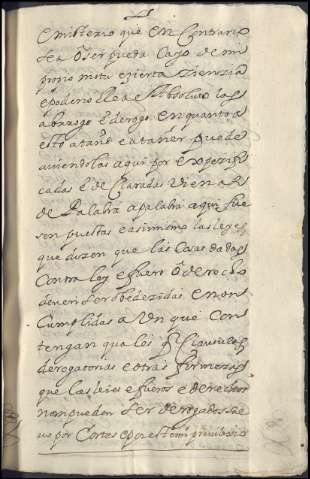 e misterio que en Contrario
sea o ser pueda Ca yo de mi
propio motu e zierta zienzia
e poderio Real e absoluto los
abrrogo E derogo en quanto a
esto atañe e atañer puede
auiendolas aqui por expresi
cadas E de Claradas vien as
de Palabra a palabra aqui fue
sen puestas e asi mismo las leyes
que dizen que las Cosas dadas
Contra ley e fuero o derecho
deuen ser obedezidas e non
Cumplidas a Vn que Con
tengan qua les qr Clausulas
derogatorias e otras firmezas
que las leies e fueros e derechos
non pueden Ser derogados sa
uo por Cortes e por este mi preuilexio